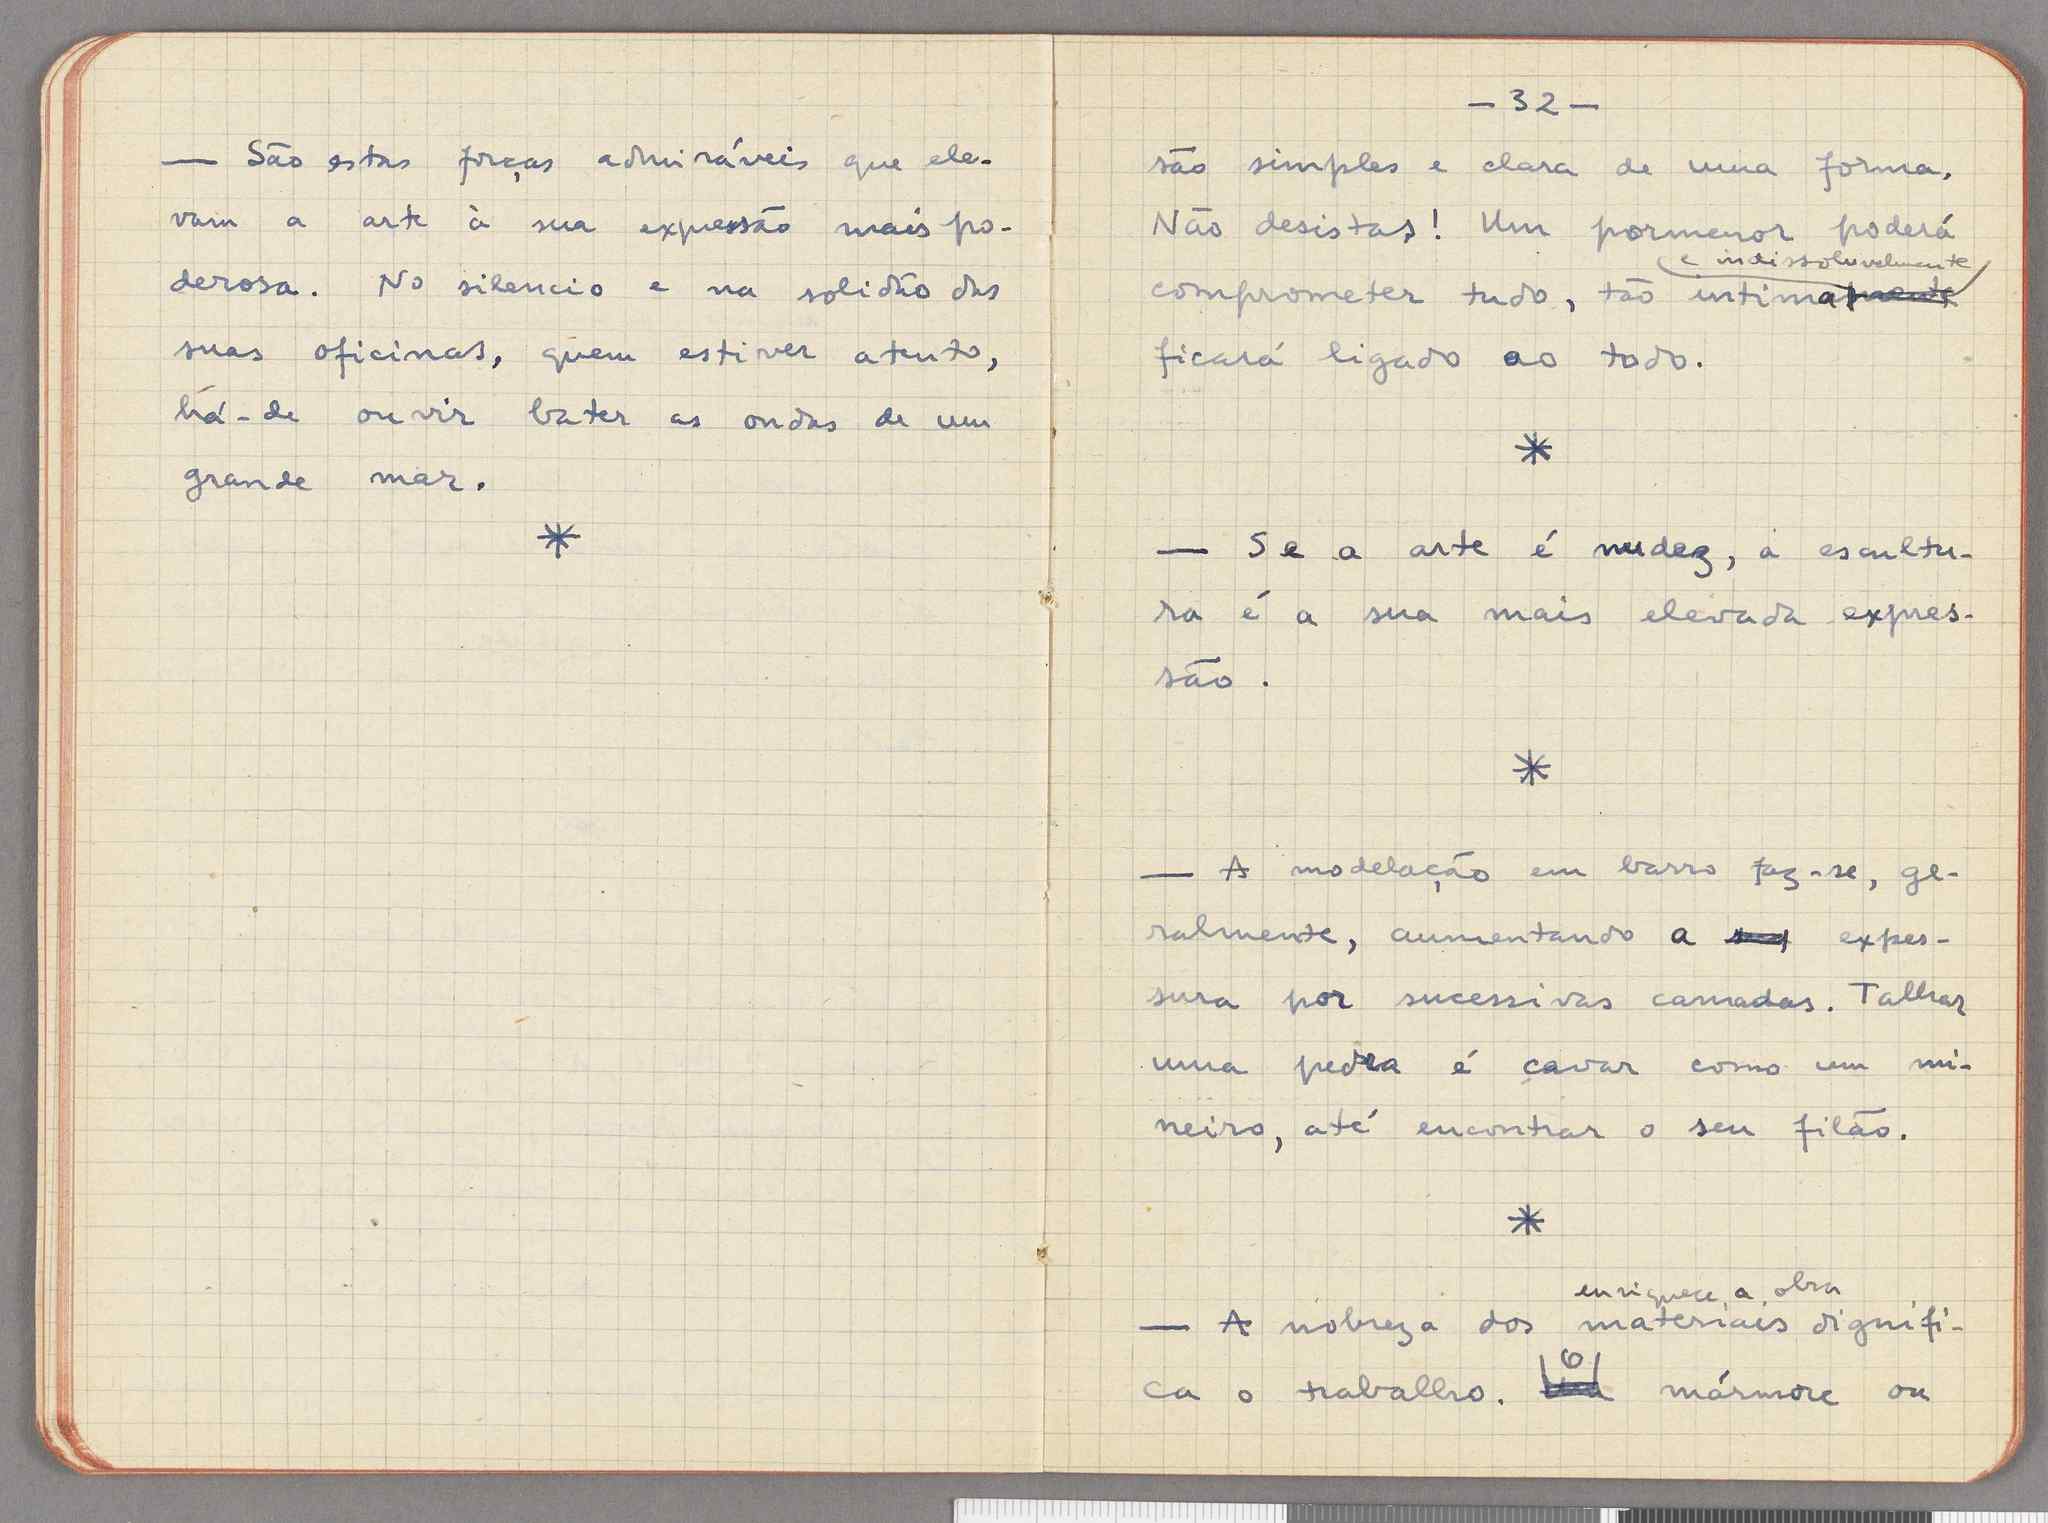 — São estas forças admiráveis que ele-
vam a arte à sua expressão mais po-
derosa. No silencio e na solidão das
suas oficinas, quem estiver atento,
há-de ouvir bater as ondas de um
grande mar.
*
— 32 —
são simples e clara de uma forma.
Não desistas! Um pormenor poderá
e indissoluvelmente
comprometer tudo, tão intimamente
ficará ligado ao todo.
*
— Se a arte é nudez, a escultu-
ra é a sua mais elevada expres-
são.
*
— A modelação em barro faz-se, ge-
ralmente, aumentando a expes-
sura por sucessivas camadas. Talhar
uma pedra é cavar como um mi-
neiro, até encontrar o seu filão.
*
enriquece a obra
— A nobreza dos materiais dignifi-
ca o trabalho. O mármore ou